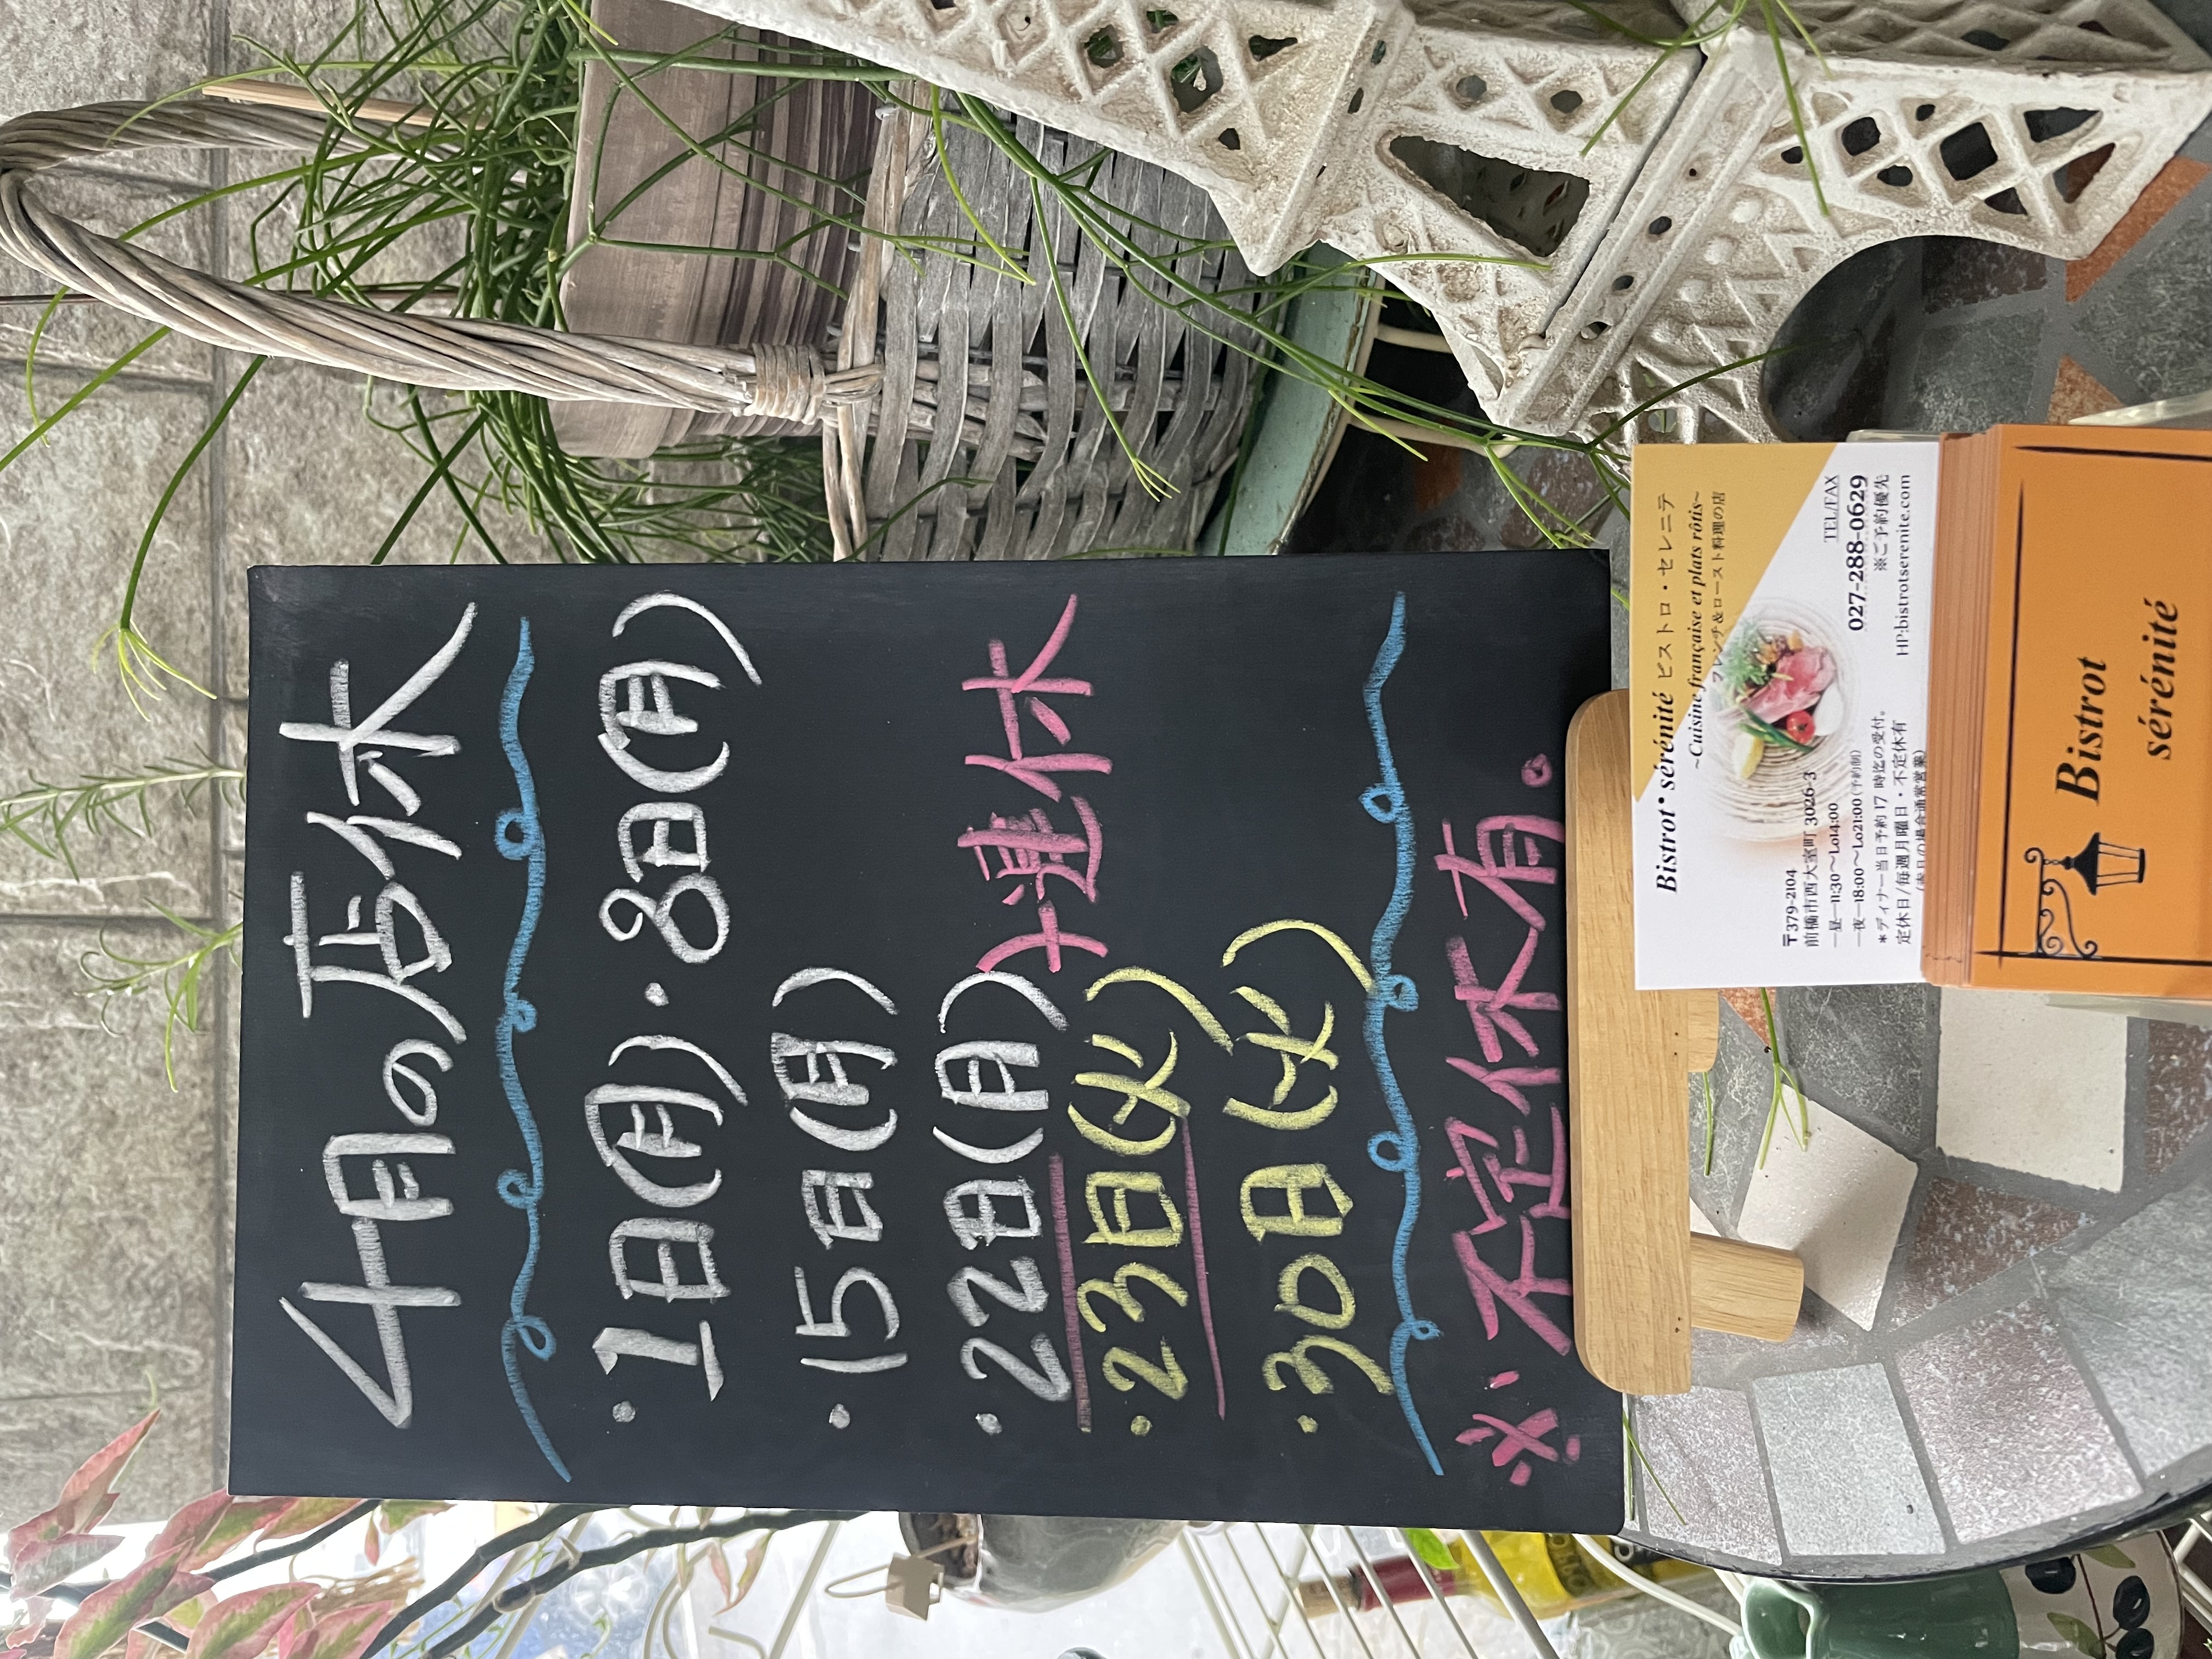 4月の店休
・1日(月)・8日(月)
・15日(月)
・22日(月)
・23日(火)
連休
・30日(火)
※不定休有。
Bistrot sérénité ビストロ・セレニテ
~Cuisine française et plats rôtis~
フレンチ&ロースト料理の店
〒379-2104
前橋市西大室町3026-3
TEL/FAX
一昼一11:30〜Lo14:00
027-288-0629
一夜一18:00〜Lo21:00(予約制)
※ご予約優先
*ディナー当日予約17時迄の受付。
HP:bistrotserenite.com
定休日/毎週月曜日・不定休有
(祝日の場合通常営業)
Bistrot
sérénité